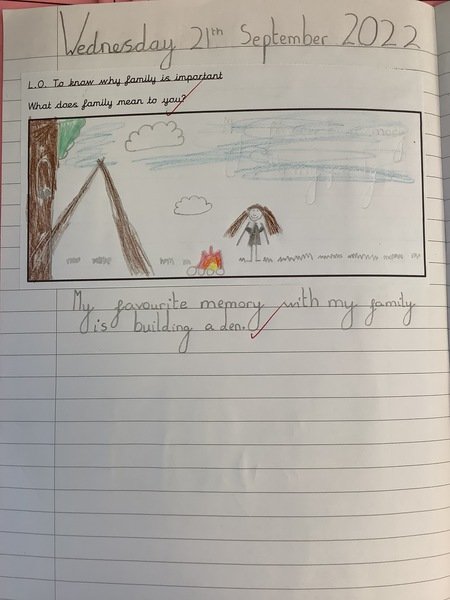 Wednesday 21th September 2022
L.O. To know why family is important
What does family mean to you?
My favourite memory with my family
is building a den.